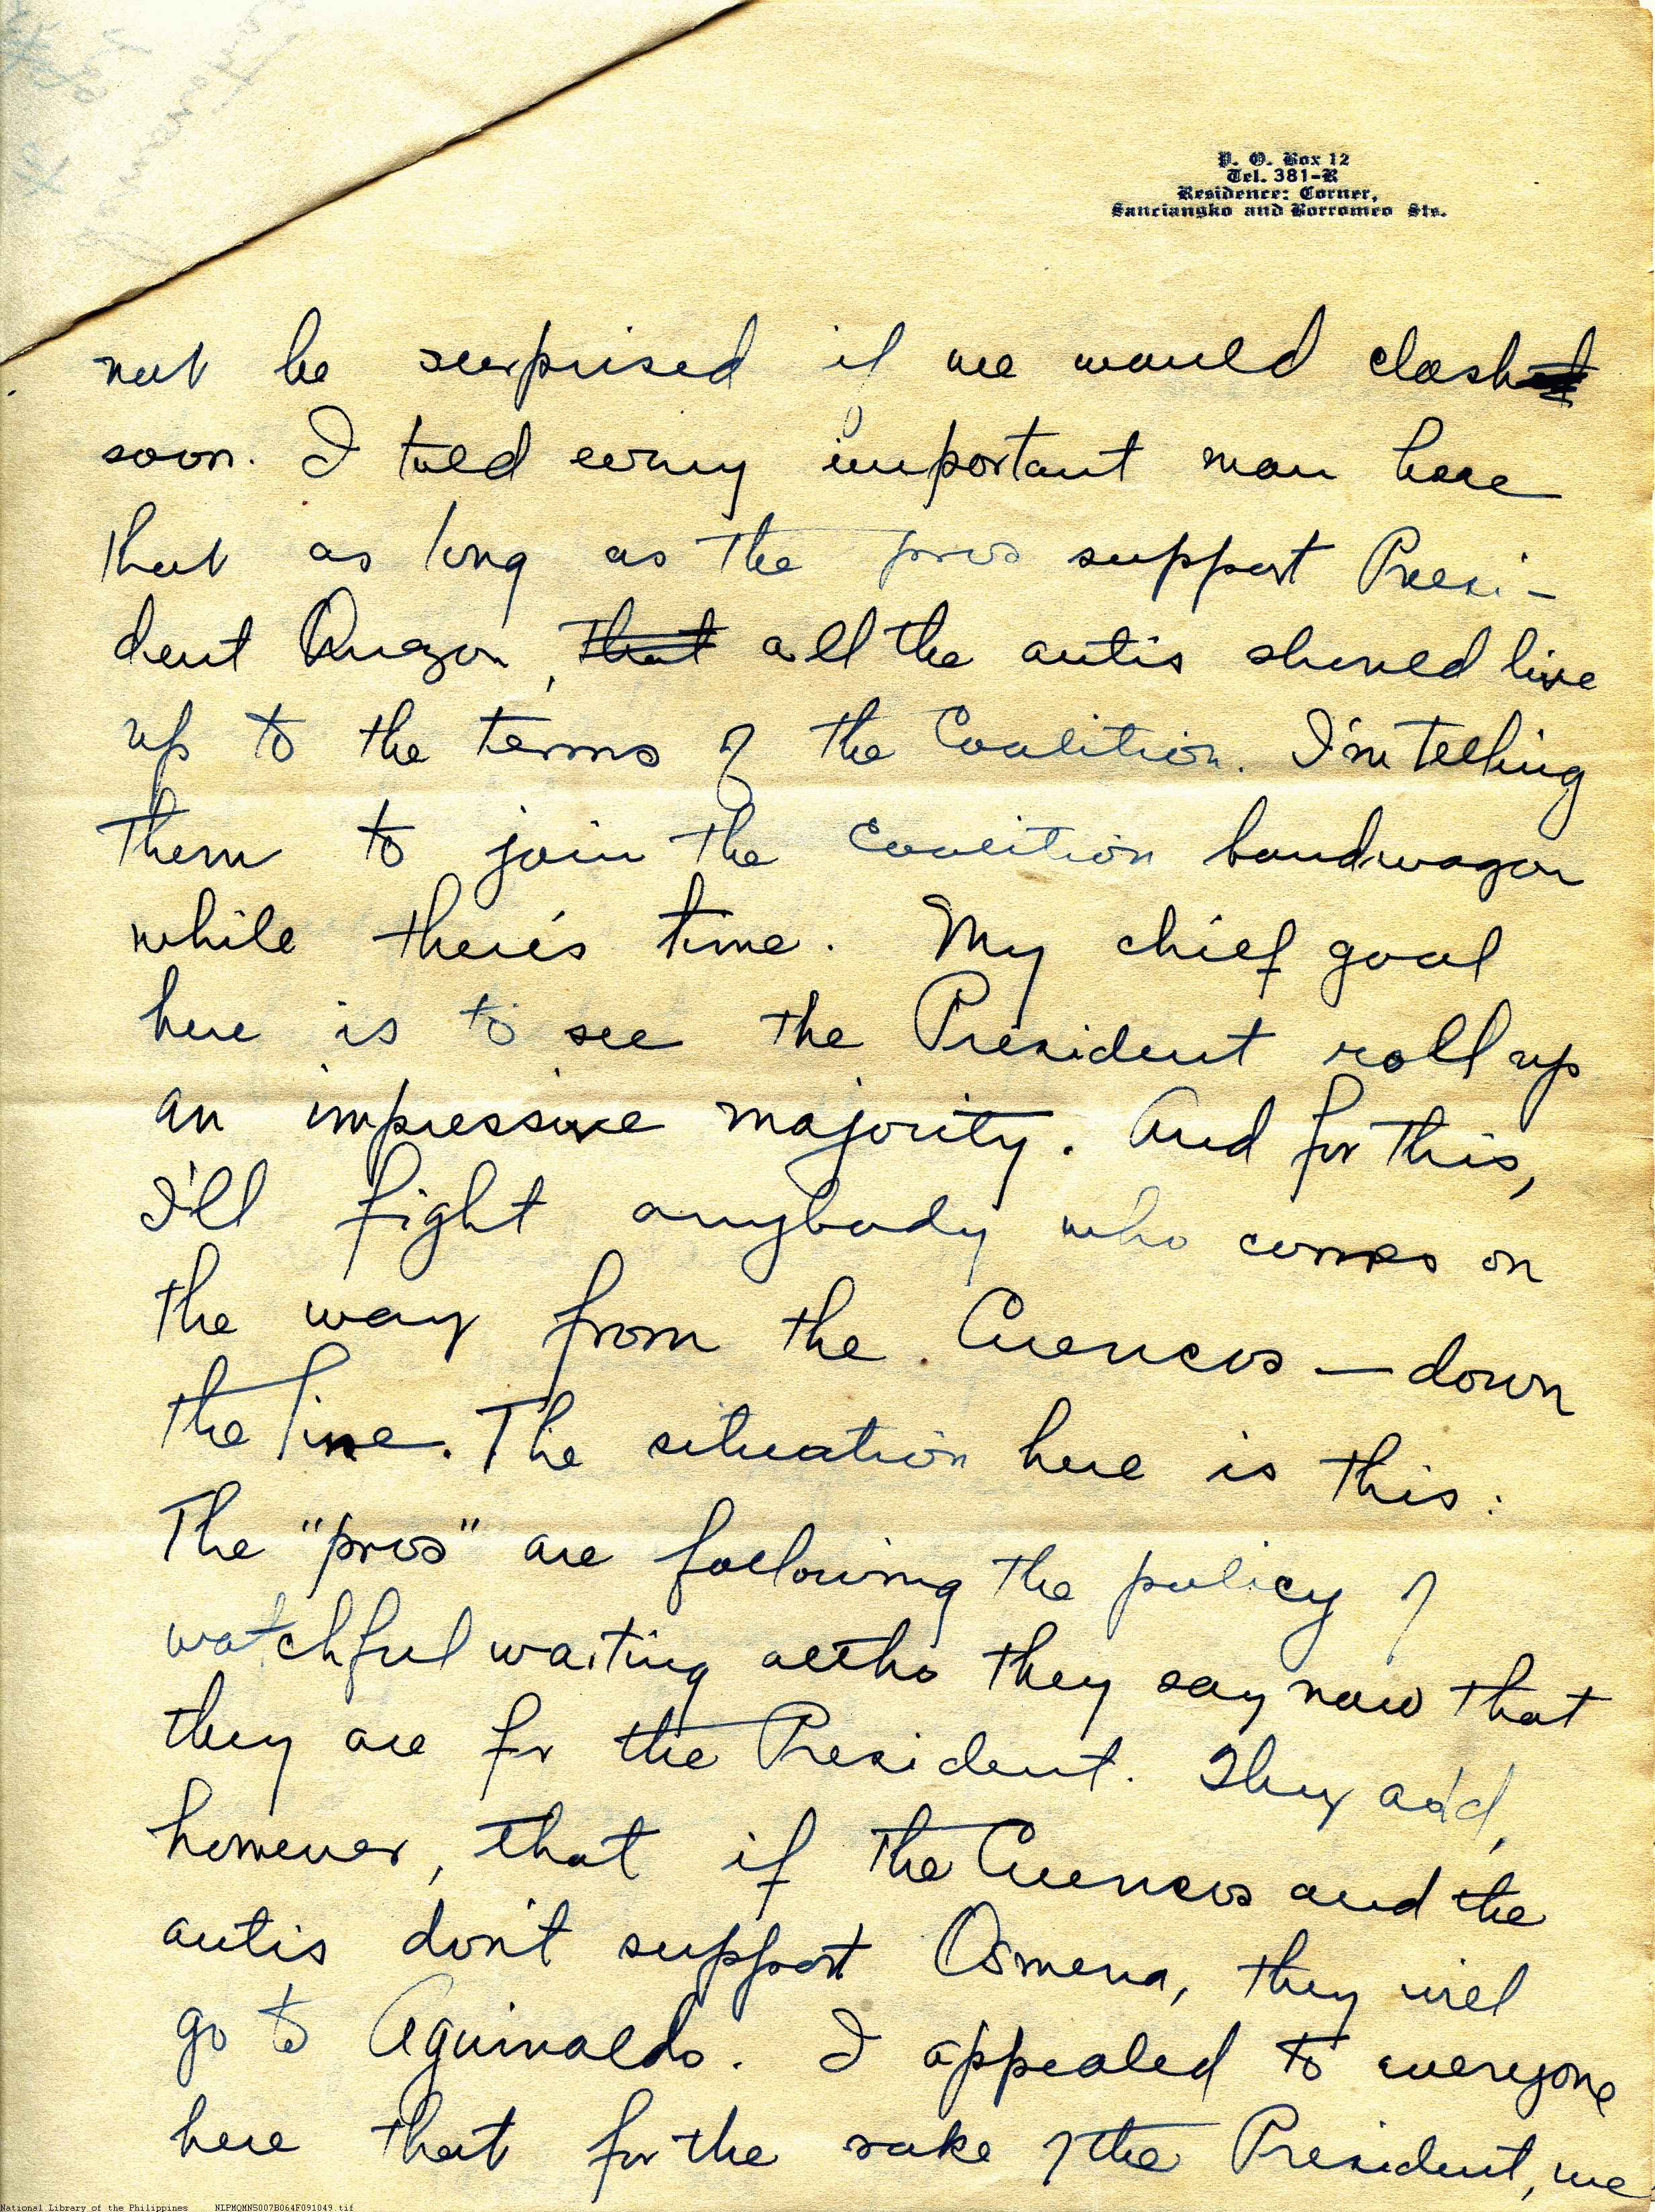 P. O. Box 12
Tel. 381-R
Residence: Corner,
Sanciangko and Borromeo Sts.
not be surprised if we would clash
soon. I told every important man here
that as long as the pros support Presi-
dent Quezon, that all the antis should live
up to the terms of the Coalition. I'm telling
them to join the Coalition bandwagon
while there's time. My chief goal
here is to see the President roll up
an impressive majority. And for this,
I'll fight anybody who comes on
the way from the Cuencos — down
the line. The situation here is this:
The "pros" are following the policy of
watchful waiting altho they say now that
they are for the President. They add,
however, that if the Cuencos and the
antis don't support Osmena, they will
go to Aguinaldo. I appealed to everyone
here that for the sake of the President, we
National Library of the Philippines NLPMQMNS007B064F091049.tif